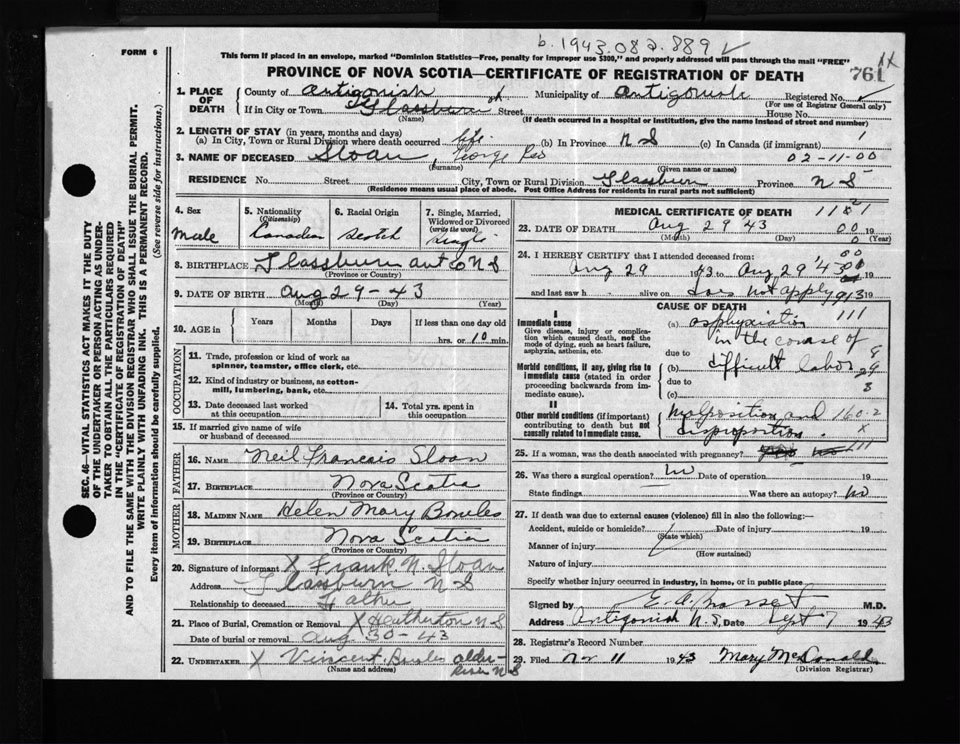 b. 1943.082.889
FORM 6
This form if placed in an envelope, marked "Dominion Statistics—Free, penalty for improper use $300," and properly addressed will pass through the mail "FREE"
PROVINCE OF NOVA SCOTIA—CERTIFICATE OF REGISTRATION OF DEATH
761
1. PLACE OF DEATH
County of Antigonish Municipality of Antigonish Registered No.
(For use of Registrar General only)
If in City or Town Glassburn Street House No.
(Name) (If death occurred in a hospital or institution, give the name instead of street and number)
2. LENGTH OF STAY (in years, months and days)
(a) In City, Town or Rural Division where death occurred life (b) In Province N S (c) In Canada (if immigrant)
3. NAME OF DECEASED Sloan, George
02-11-00
(Surname) (Given name or names)
RESIDENCE No. Street City, Town or Rural Division Glassburn Province N S
(Residence means usual place of abode. Post Office Address for residents in rural parts not sufficient)
4. Sex Male
5. Nationality (Citizenship) Canadian
6. Racial Origin Scotch
7. Single, Married, Widowed or Divorced (write the word) Single
8. BIRTHPLACE Glassburn Ant Co N S
(Province or Country)
9. DATE OF BIRTH Aug 29-43
(Month) (Day) (Year)
10. AGE in Years Months Days If less than one day old
hrs. or 10 min.
OCCUPATION
11. Trade, profession or kind of work as spinner, teamster, office clerk, etc.
12. Kind of industry or business, as cotton-mill, lumbering, bank, etc.
13. Date deceased last worked at this occupation
14. Total yrs. spent in this occupation
15. If married give name of wife or husband of deceased
FATHER
16. NAME Neil Francis Sloan
17. BIRTHPLACE Nova Scotia
(Province or Country)
MOTHER
18. MAIDEN NAME Helen Mary Bowles
19. BIRTHPLACE Nova Scotia
(Province or Country)
20. Signature of informant X Frank N. Sloan
Address Glassburn N S
Relationship to deceased Father
21. Place of Burial, Cremation or Removal X Heatherton N S
Date of burial or removal Aug 30-43
22. UNDERTAKER X Vincent
(Name and address)
River N S
MEDICAL CERTIFICATE OF DEATH
23. DATE OF DEATH Aug 29 43 19
(Month) (Day) (Year)
24. I HEREBY CERTIFY that I attended deceased from:
Aug 29 1943 to Aug 29 '43 19
and last saw h alive on does not apply 19
CAUSE OF DEATH
I
Immediate cause
Give disease, injury or complication which caused death, not the mode of dying, such as heart failure, asphyxia, asthenia, etc.
(a) asphyxiation
in the course of
due to
(b) difficult labor
due to
(c)
Morbid conditions, if any, giving rise to immediate cause (stated in order proceeding backwards from immediate cause).
II
Other morbid conditions (if important) contributing to death but not causally related to immediate cause.
Malposition and 160.2
disproportion. x
25. If a woman, was the death associated with pregnancy?
26. Was there a surgical operation? No Date of operation 19
State findings Was there an autopsy? No
27. If death was due to external causes (violence) fill in also the following:—
Accident, suicide or homicide? Date of injury 19
(State which)
Manner of injury
(How sustained)
Nature of injury
Specify whether injury occurred in industry, in home, or in public place
Signed by M.D.
Address Antigonish N.S. Date Sept 7 1943
28. Registrar's Record Number
29. Filed 11 1943 Mary McDonald
(Division Registrar)
SEC. 46—VITAL STATISTICS ACT MAKES IT THE DUTY
OF THE UNDERTAKER OR PERSON ACTING AS UNDER-
TAKER TO OBTAIN ALL THE PARTICULARS REQUIRED
IN THE "CERTIFICATE OF REGISTRATION OF DEATH"
AND TO FILE THE SAME WITH THE DIVISION REGISTRAR WHO SHALL ISSUE THE BURIAL PERMIT.
WRITE PLAINLY WITH UNFADING INK. THIS IS A PERMANENT RECORD.
Every item of information should be carefully supplied. (See reverse side for instructions.)